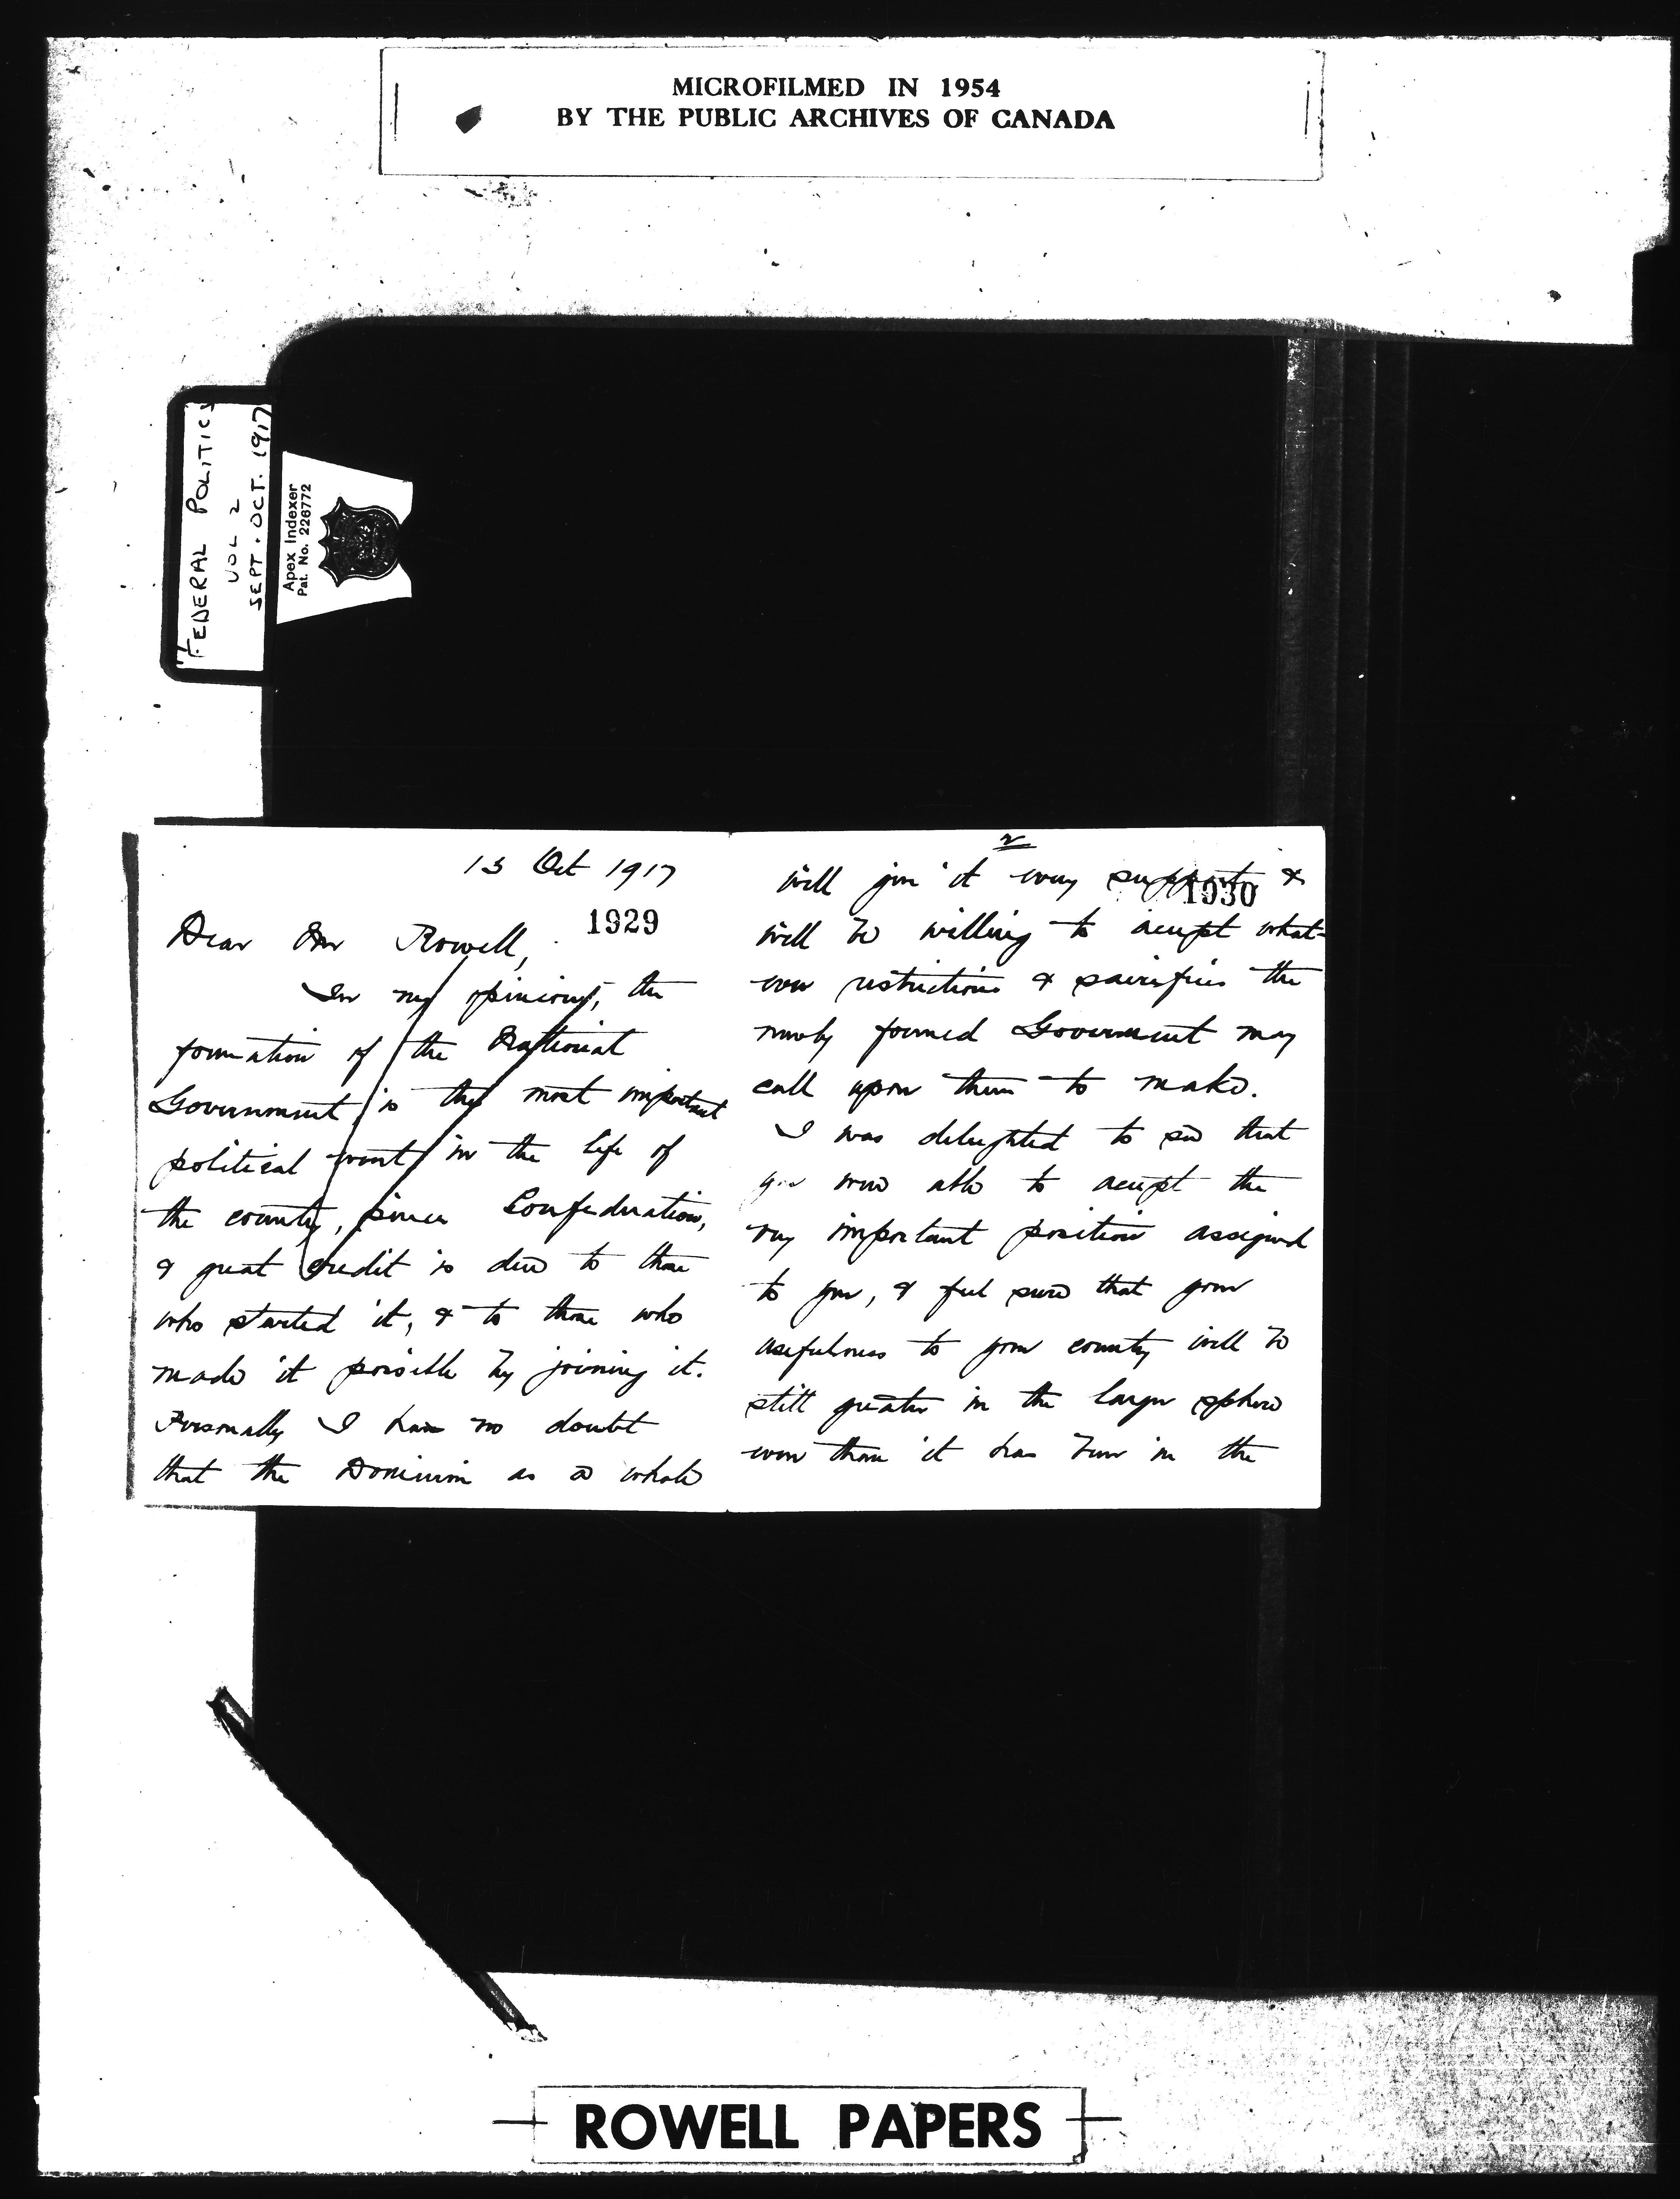 MICROFILMED IN 1954
BY THE PUBLIC ARCHIVES OF CANADA
FEDERAL POLITICS
VOL 2
SEPT. OCT. 1917
Apex Indexer
Pat. No. 226772
13 Oct 1917
1929
Dear Mr Rowell,
In my opinion, the
formation of the National
Government is the most important
political event in the life of
the country, since Confederation,
& great credit is due to those
who started it, & to those who
made it possible by joining it.
Personally I have no doubt
that the Dominion as a whole
2
1930
will give it every support &
will be willing to accept what-
ever restrictions & sacrifices the
newly formed Government may
call upon them to make.
I was delighted to see that
you were able to accept the
very important position assigned
to you, & feel sure that your
usefulness to your country will be
still greater in the larger sphere
even than it has been in the
ROWELL PAPERS